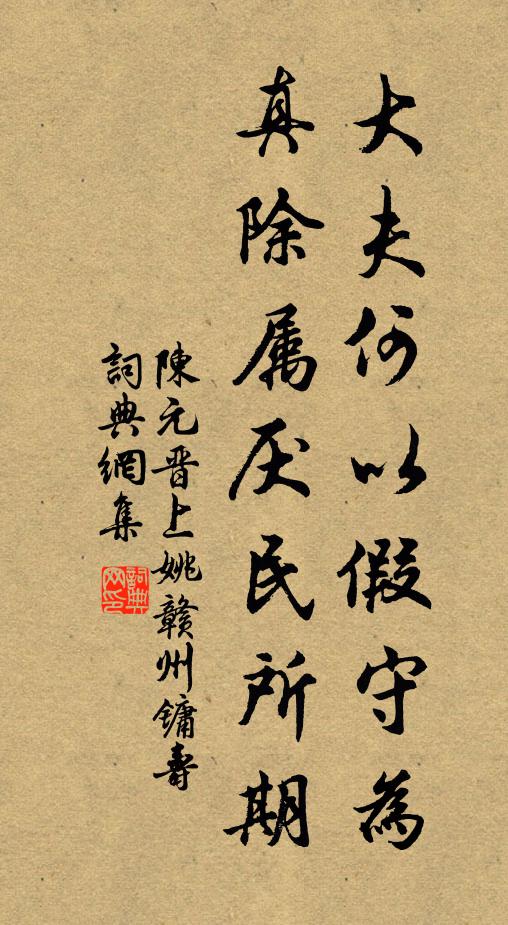 大夫何以假守為
真除属厌民所期
陳元晋上姚贛州鏞壽
詞典網集
詞典网印